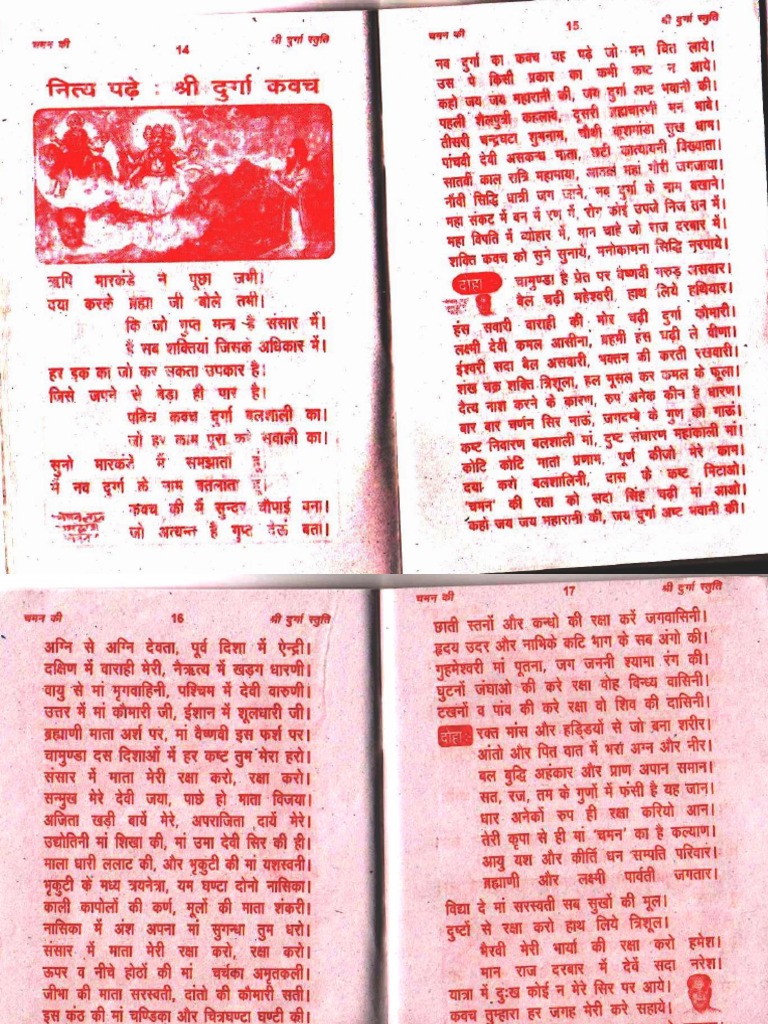 चमन की
14
श्री दुर्गा स्तुति
नित्य पढ़े : श्री दुर्गा कवच
ऋषि मारकंडे ने पूछा जभी।
दया करके ब्रह्मा जी बोले तभी।
कि जो गुप्त मन्त्र है संसार में।
हैं सब शक्तियां जिसके अधिकार में।
हर इक का जो कर सकता उपकार है।
जिसे जपने से बेड़ा ही पार है।
पवित्र कवच दुर्गा बलशाली का।
जो हर काम पूरा करे सवाली का।
सुनो मारकंडे मैं समझाता हूं।
मैं नव दुर्गा के नाम बतलाता हूं।
कवच की मैं सुन्दर चौपाई बना।
जो अत्यन्त है गुप्त देऊं बता।
चमन की
15
श्री दुर्गा स्तुति
नव दुर्गा का कवच यह पढ़े जो मन चित लाये।
उस पे किसी प्रकार का कभी कष्ट न आये।
कहो जय जय महारानी की, जय दुर्गा अष्ट भवानी की।
पहली शैलपुत्री कहलाये, दूसरी ब्रह्मचारणी मन भावे।
तीसरी चन्द्रघटा शुभनाम, चौथी कूशमांडा सुख धाम।
पांचवी देवी असकन्ध माता, छटी कात्यायनी विख्याता।
सातवीं काल रात्रि महामाया, आठवीं महां गौरी जगजाया।
नौवीं सिद्धि धात्री जग जाने, नव दुर्गा के नाम बखाने।
महा संकट में वन में रण में, रोग कोई उपजे निज तन में।
महा विपति में व्योहार में, मान चाहे जो राज दरबार में।
शक्ति कवच को सुने सुनाये, मनोकामना सिद्धि नरपाये।
दोहा
चामुण्डा है प्रेत पर वैष्णवी गरुड़ असवार।
बैल चढ़ी महेश्वरी, हाथ लिये हथियार।
हंस सवारी वाराही की मोर चढ़ी दुर्गा कौमारी।
लक्ष्मी देवी कमल आसीना, ब्रहमी हंस चढ़ी ले वीणा।
ईश्वरी सदा बैल असवारी, भक्तन की करती रखवारी।
शंख चक्र शक्ति त्रिशूला, हल मूसल कर कमल के फूला।
दैत्य नाश करने के कारण, रुप अनेक कीन है धारण।
बार बार चर्णन सिर नाऊं, जगदम्बे के गुण को गाऊं।
कष्ट निवारण बलशाली मां, दुष्ट संघारण महांकाली मां।
कोटि कोटि माता प्रणाम, पूर्ण कीजो मेरे काम।
दया करो बलशालिनी, दास के कष्ट मिटाओ।
'चमन' की रक्षा को सदा सिंह चढ़ी मां आओ।
कहो जय जय महारानी की, जय दुर्गा अष्ट भवानी की।
चमन की
16
श्री दुर्गा स्तुति
अग्नि से अग्नि देवता, पूर्व दिशा में ऐन्द्री।
दक्षिण में वाराही मेरी, नैऋत्य में खड़ग धारणी।
वायु से मां मृगवाहिनी, पश्चिम में देवी वारुणी।
उत्तर में मां कौमारी जी, ईशान में शूलधारी जी।
ब्रह्माणी माता अर्श पर, मां वैष्णवी इस फर्श पर।
चामुण्डा दस दिशाओं में हर कष्ट तुम मेरा हरो।
संसार में माता मेरी रक्षा करो, रक्षा करो।
सन्मुख मेरे देवी जया, पाछे हो माता विजया।
अजिता खड़ी बायें मेरे, अपराजिता दायें मेरे।
उद्योतिनी मां शिखा की, मां उमा देवी सिर की ही।
माला धारी ललाट की, और भृकुटी की मां यशस्वनी।
भृकुटी के मध्य त्रयनेत्रा, यम घण्टा दोनो नासिका।
काली कापोलों की कर्ण, मूलों की माता शंकरी।
नासिका में अंश अपना मां सुगन्धा तुम धरो।
संसार में माता मेरी रक्षा करो, रक्षा करो।
ऊपर व नीचे होठों की मां चर्चका अमृतकली।
जीभा की माता सरस्वती, दांतो की कौमारी सती।
इस कंठ की मां चण्डिका और चित्रघण्टा घण्टी की।
चमन की
17
श्री दुर्गा स्तुति
छाती स्तनों और कन्धो की रक्षा करें जगवासिनी।
हृदय उदर और नाभिके कटि भाग के सब अंगो की।
गुहमेश्वरी मां पूतना, जग जननी श्यामा रंग की।
घुटनों जंघाओ की करे रक्षा वोह विन्ध्य वासिनी।
टखनों व पांव की करे रक्षा वो शिव की दासिनी।
दोहा
रक्त मांस और हडि्डयों से जो बना शरीर।
आंतो और पित वात में भरा अग्न और नीर।
बल बुद्धि अहंकार और प्राण अपान समान।
सत, रज, तम के गुणों में फंसी है यह जान।
धार अनेकों रुप ही रक्षा करियो आन।
तेरी कृपा से ही मां 'चमन' का है कल्याण।
आयु यश और कीर्ति धन सम्पति परिवार।
ब्रह्माणी और लक्ष्मी पार्वती जगतार।
विद्या दे मां सरस्वती सब सुखों की मूल।
दुष्टों से रक्षा करो हाथ लिये त्रिशूल।
भैरवी मेरी भार्या की रक्षा करो हमेश।
मान राज दरबार में देवें सदा नरेश।
यात्रा में दुःख कोई न मेरे सिर पर आये।
कवच तुम्हारा हर जगह मेरी करे सहाये।